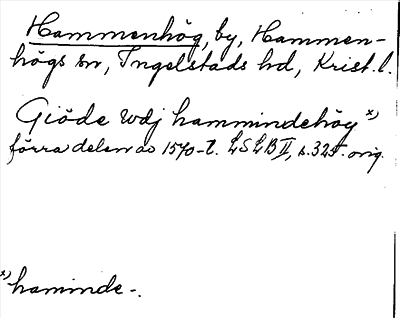 Hammenhög, by, Hammen-
högs sn, Ingelstads hd, Krist. l.
Giöde wdj hammindehög x)
förra delen av 1570-t. LSLB II, s. 325. orig.
x) haminde-.